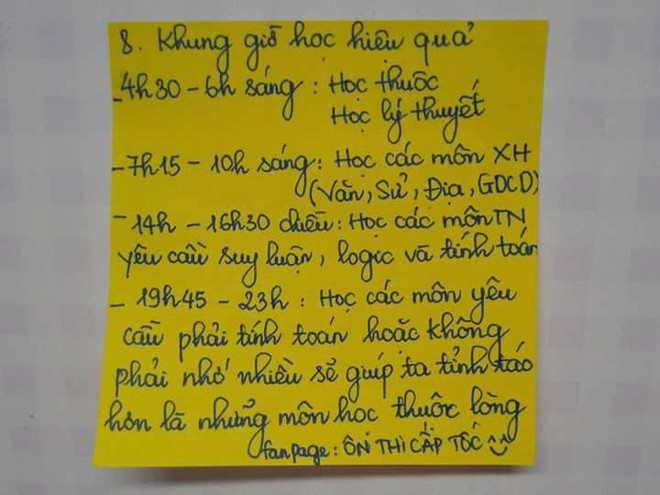 8. Khung giờ học hiệu quả
- 4h30 - 6h sáng : Học thuộc
Học lý thuyết
- 7h15 - 10h sáng : Học các môn XH
(Văn, Sử, Địa, GDCD)
- 14h - 16h30 chiều : Học các môn TN
yêu cầu suy luận, logic và tính toán
- 19h45 - 23h : Học các môn yêu
cầu phải tính toán hoặc không
phải nhớ nhiều sẽ giúp ta tỉnh táo
hơn là những môn học thuộc lòng
fanpage : ÔN THI CẤP TỐC